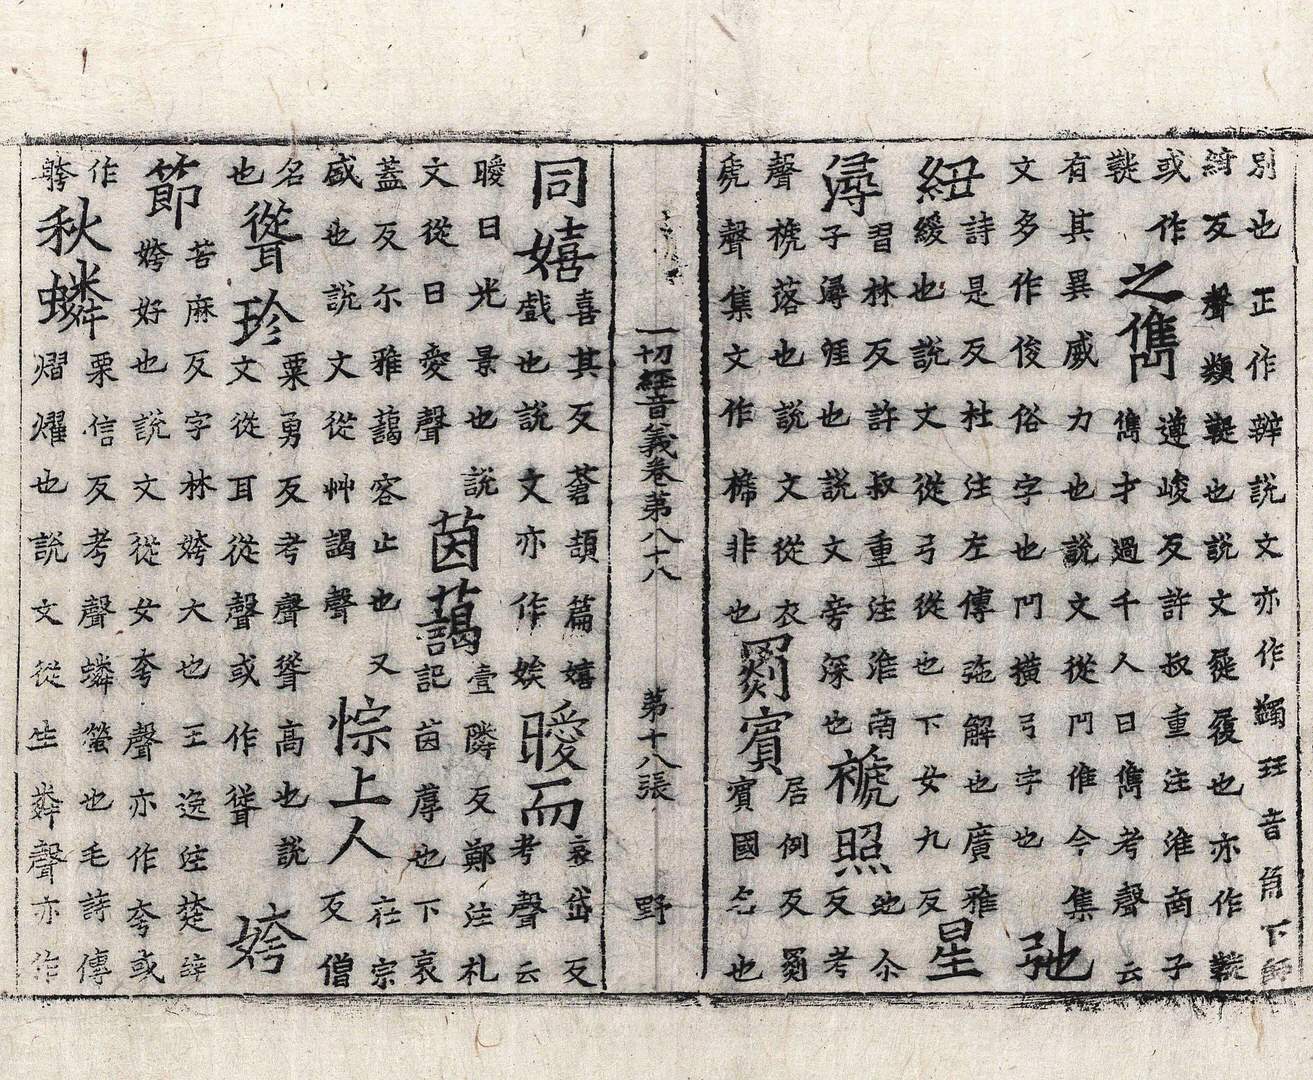 別也正作辨說文亦作躅珏音角下師
綺反聲類鞮也說文屣履也亦作
或作
之儁
遵峻反許叔重注淮南子
儁才過千人曰儁考聲云
有其異威力也說文從冂作今集
文多作俊俗字也冂橫弓字也
弛
紐
詩是反杜注左傳弛解也廣雅
緩也說文從弓從也下女九反
星
潯
習林反許叔重注淮南
子潯涯也說文旁深也
褫照
池尒
反考
聲褫落也說文從衣
虒聲集文作非也
罽賓
居例反罽
賓國名也
一切經音義卷第八十八 第十八張 野
同嬉
喜其反蒼頡篇嬉
戲也說文亦作娭
曖而
哀岱反
考聲云
曖日光景也說
文從日愛聲
茵藹
壹隣反鄭注札
記茵蓐也下哀
蓋反尒雅藹容止也又
盛也說文從艸謁聲
悰上人
在宗
反僧
名
也
聳珍
粟勇反考聲聳高也說
文從耳從聲或作聳
姱
節
苦麻反字林姱大也王逸注楚辝
姱好也說文從女夸聲亦作夸或
作
秋
栗信反考聲螢也毛詩傳
熠燿也說文從生粦聲亦作